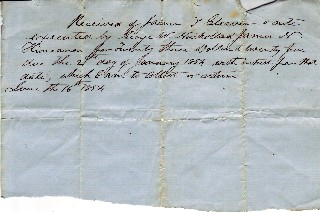 Received of James T. a note
executed by George W. James N.
for Twenty three Dollars twenty five
due the 2nd day of January 1854 with interest from that
date, which I am to collect or return
June the 16th 1854